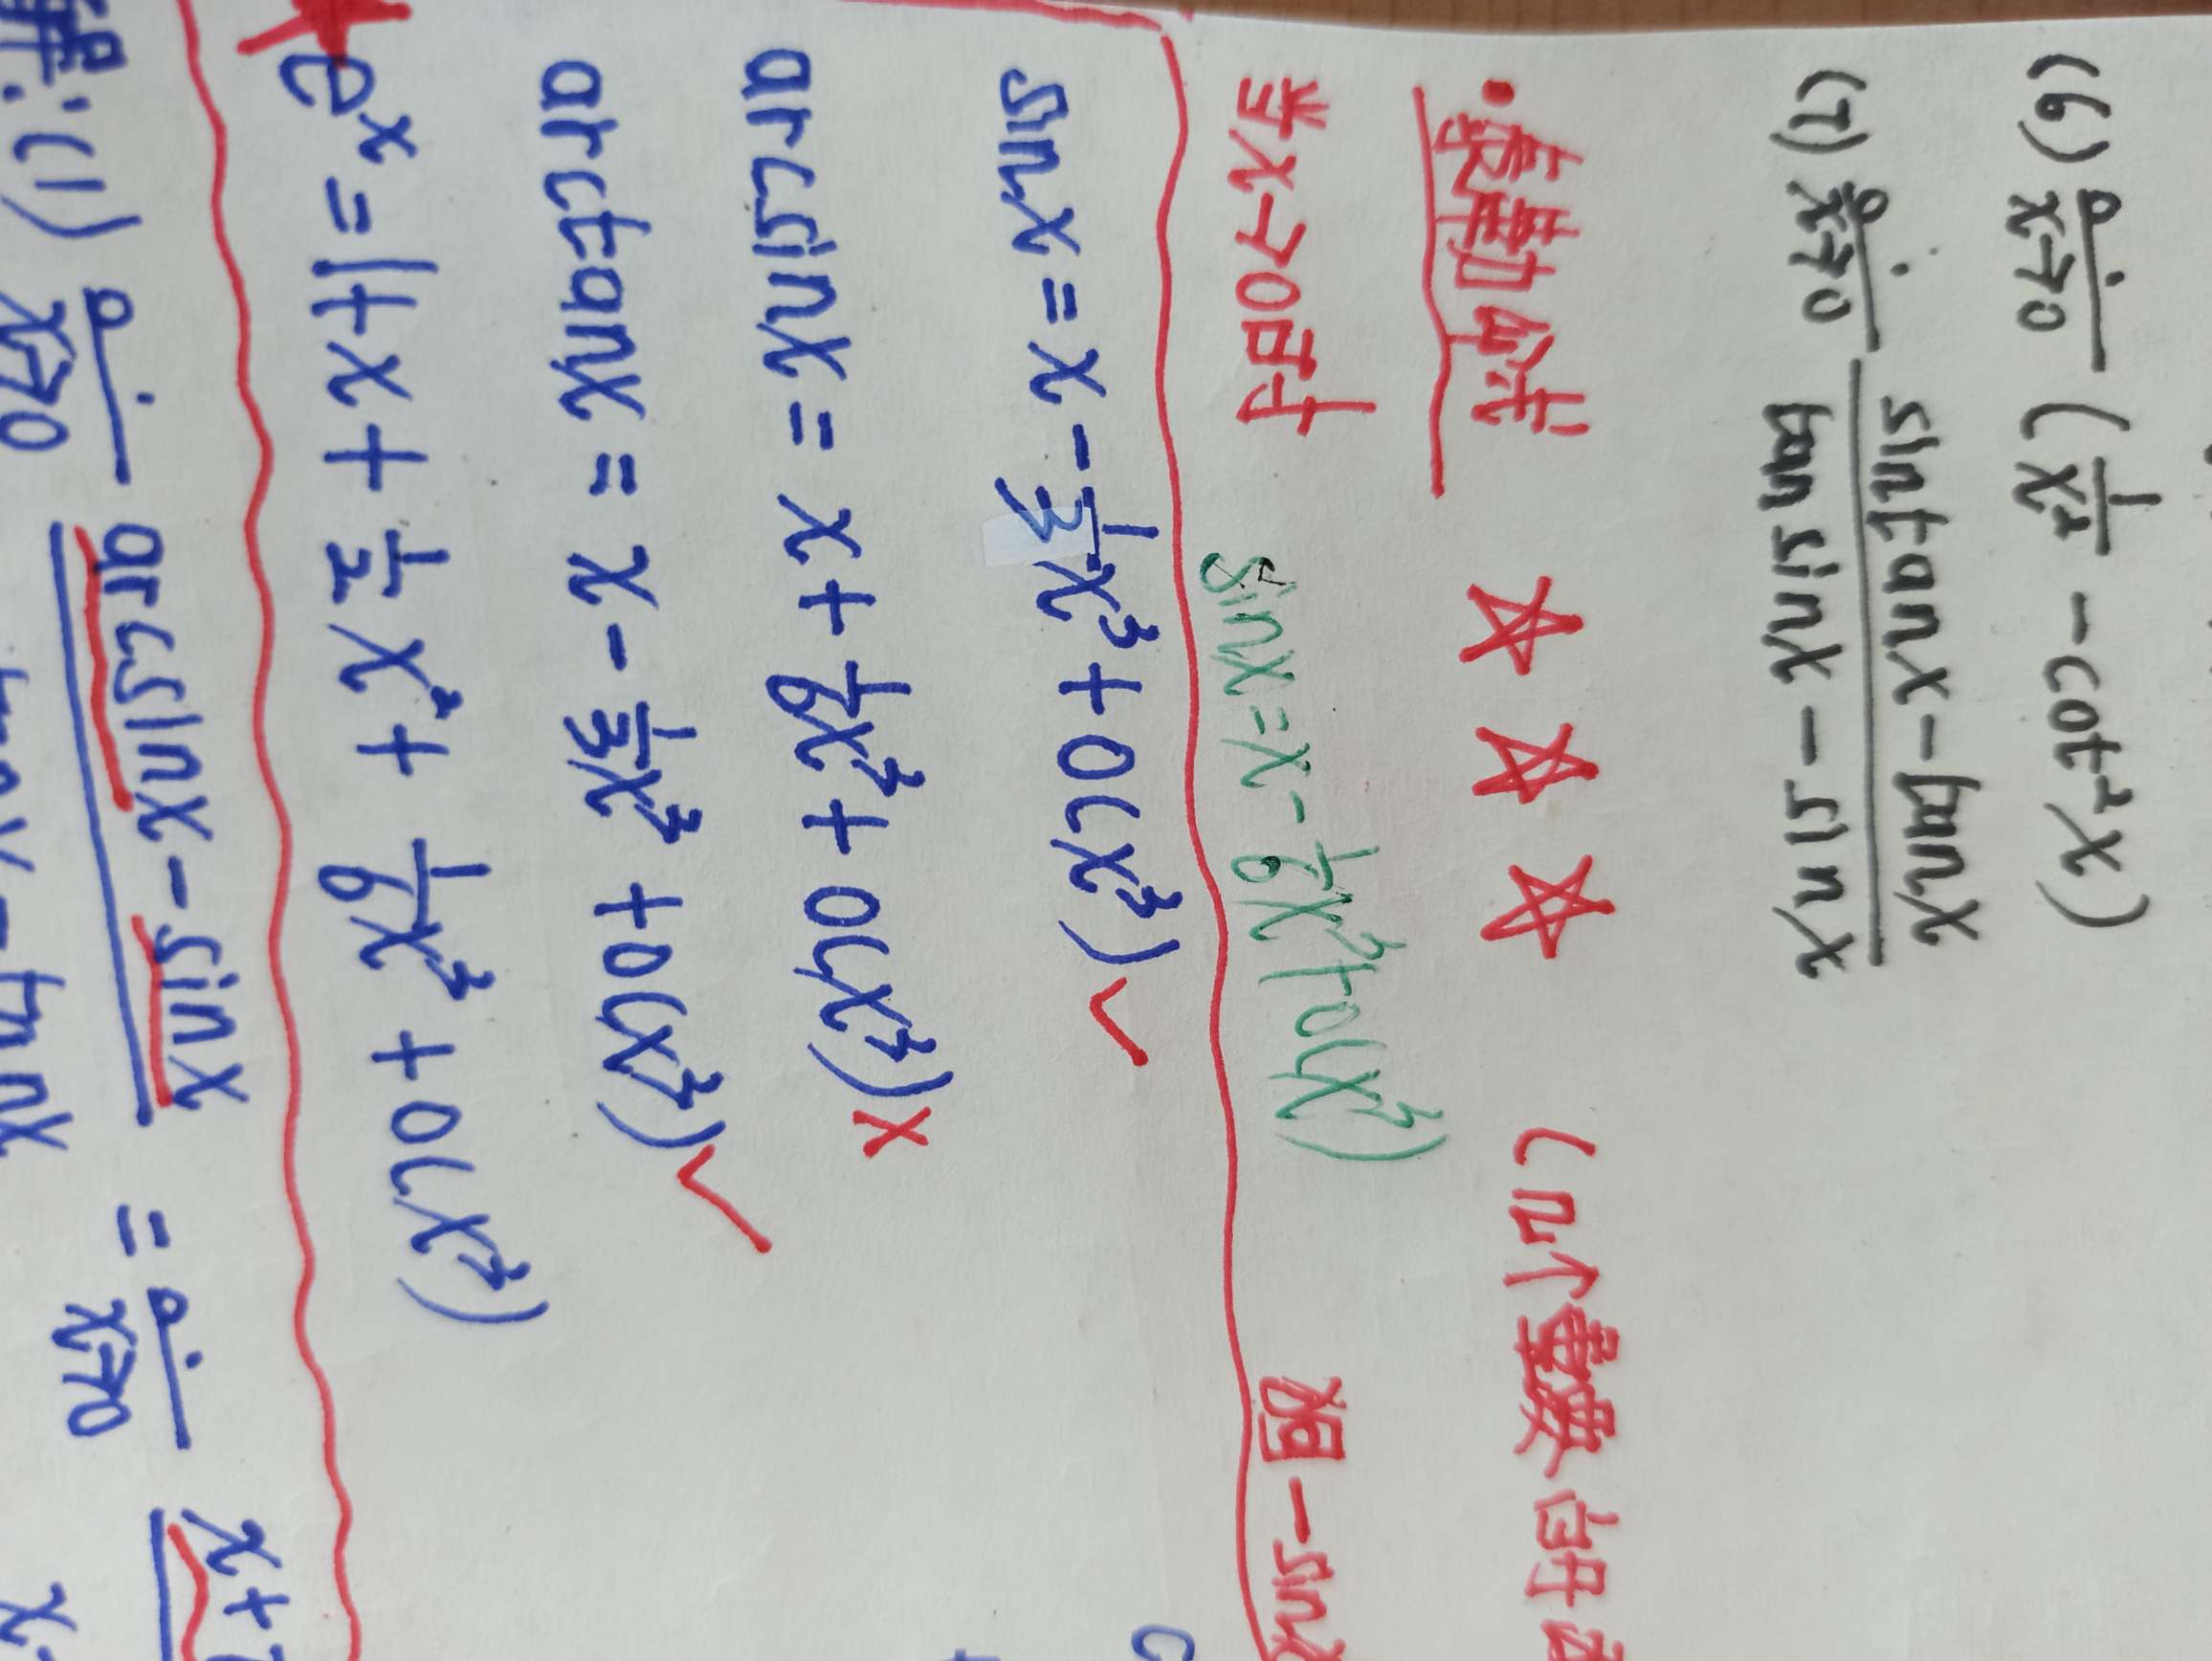 (6) lim x→0 (1/x² - cot²x)
(7) lim x→0 (sintanx - tanx)/(tan sinx - sinx)
泰勒公式 ☆ ☆ ☆ (几个重要的
当x→0时 sinx = x - 1/6x³ + o(x³) 把 - sinx
sinx = x - 1/3x³ + o(x³) ✓
arcsinx = x + 1/6x³ + o(x³) ×
arctanx = x - 1/3x³ + o(x³) ✓
★ eˣ = 1 + x + 1/2x² + 1/6x³ + o(x³)
解: (1) lim x→0 arcsinx - sinx = lim x→0 x +